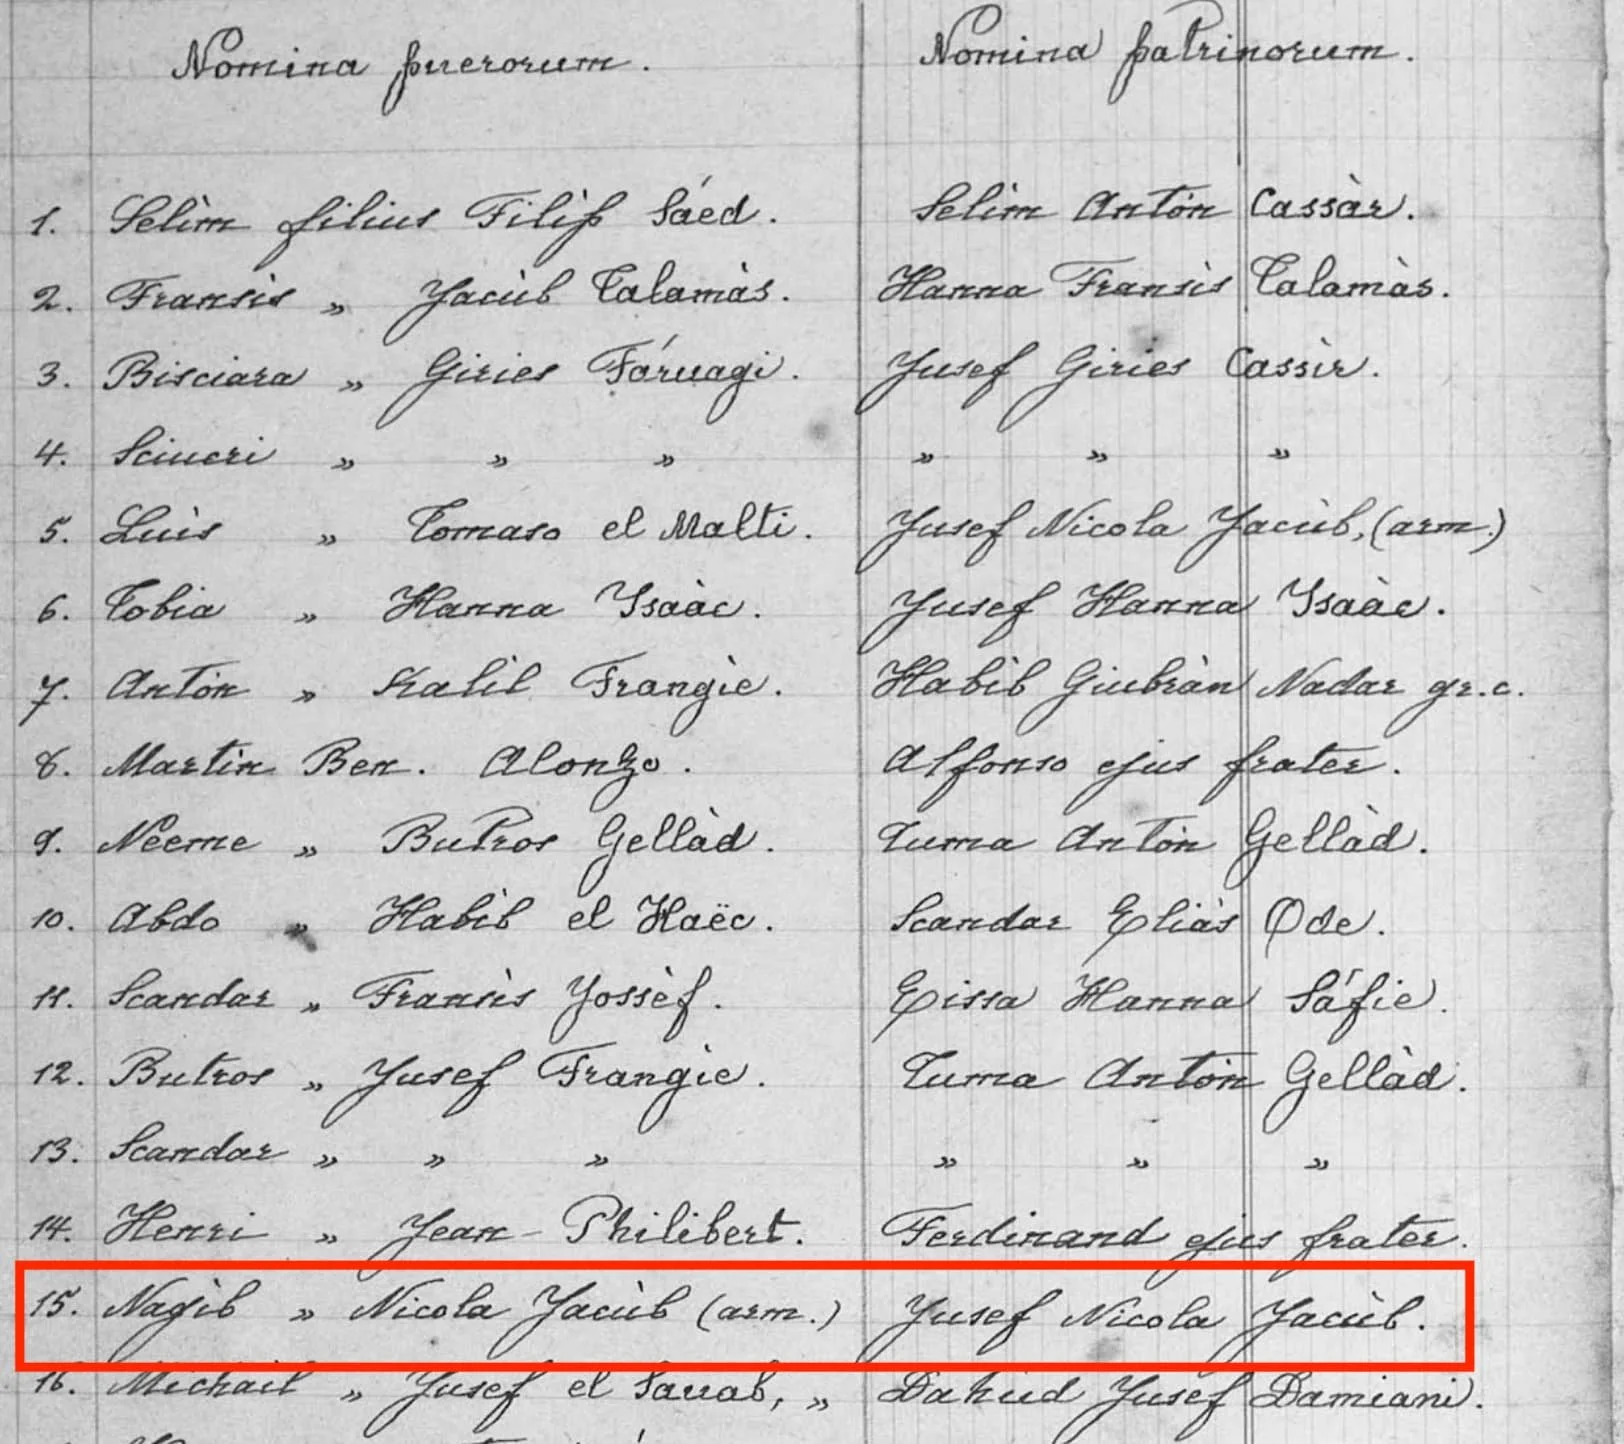 Nomina puerorum. Nomina patrinorum.
1. Selìm filius Filip Sáed. Selim Antón Cassàr.
2. Fransìs „ Yacùb Talamàs. Hanna Fransìs Talamàs.
3. Bisciara „ Giries Fáruagi. Yusef Giries Cassìr.
4. Sciucri „ „ „ „ „ „
5. Luis „ Tomaso el Malti. Yusef Nicola Yacùb, (arm.)
6. Tobia „ Hanna Ysaàc. Yusef Hanna Ysaàc.
7. Antón „ Kalil Frangìe. Habìb Giubràn Nadar gr.c.
8. Martin Ben. Alonzo. Alfonso ejus frater.
9. Neeme „ Butros Gellàd. Tuma Antòn Gellàd.
10. Abdo „ Habìb el Haëc. Scandar Eliàs Ode.
11. Scandar „ Fransìs Yossèf. Eissa Hanna Sáfie.
12. Butros „ Yusef Frangìe. Tuma Antòn Gellàd.
13. Scandar „ „ „ „ „ „
14. Henri „ Jean-Philibert. Ferdinand ejus frater.
15. Nagìb „ Nicola Yacùb (arm.) Yusef Nicola Yacùb.
16. Michail „ Yusef el Sauab, „ Dahud Yusef Damiani.